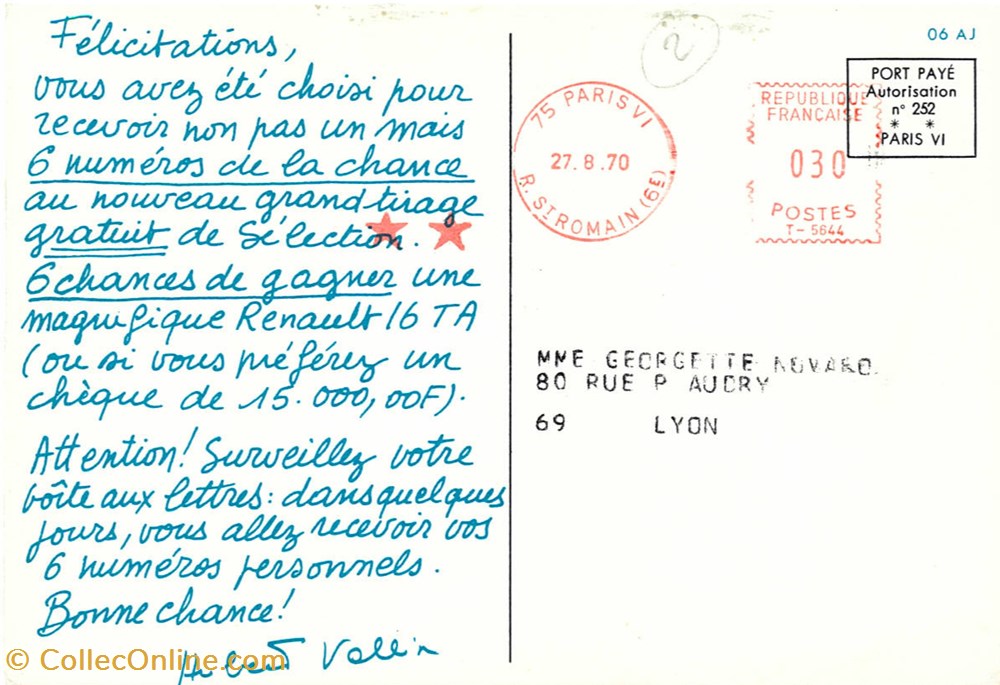 Félicitations,
vous avez été choisi pour
recevoir non pas un mais
6 numéros de la chance
au nouveau grand tirage
gratuit de Sélection.
6 chances de gagner une
magnifique Renault 16 TA
(ou si vous préférez un
chèque de 15.000,00F).
Attention! Surveillez votre
boîte aux lettres: dans quelques
jours, vous allez recevoir vos
6 numéros personnels.
Bonne chance!
Vallin
© CollecOnline.com
2
06 AJ
75 PARIS VI
27.8.70
R. ST ROMAIN (6E)
REPUBLIQUE
FRANCAISE
030
POSTES
T-5644
PORT PAYÉ
Autorisation
n° 252
* *
PARIS VI
MME GEORGETTE
80 RUE P AUDRY
69 LYON